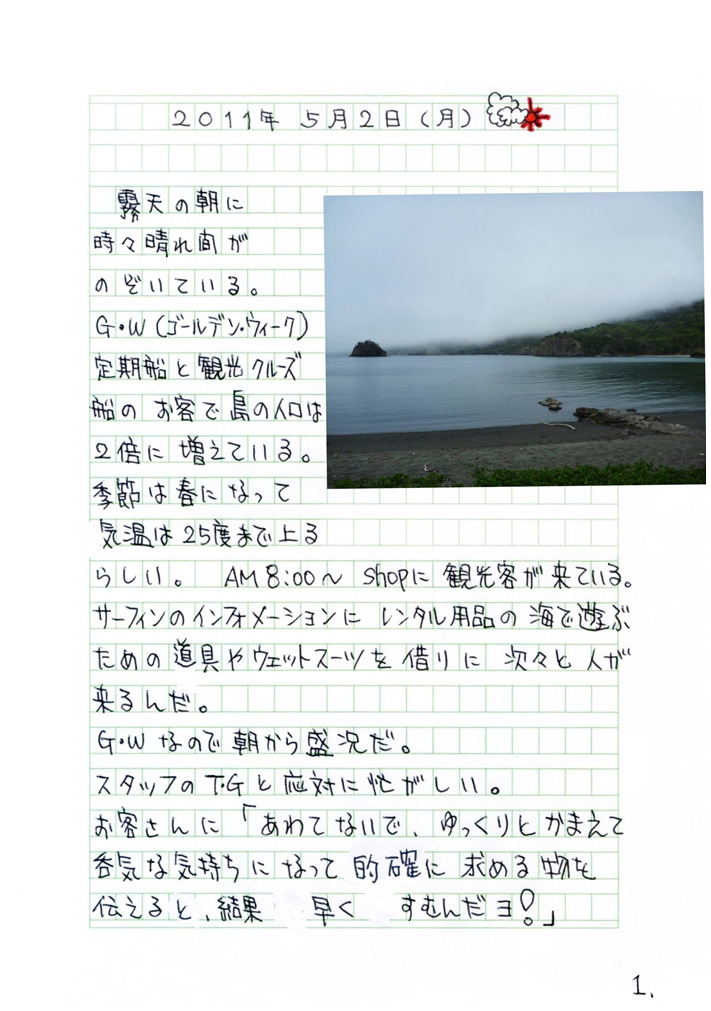 2011年 5月2日(月)
霧天の朝に
時々晴れ間が
のぞいている。
G・W(ゴールデン・ウィーク)
定期船と観光クルーズ
船の お客で島の人口は
2倍に増えている。
季節は春になって
気温は25度まで上る
らしい。 AM8:00〜 Shopに観光客が来ている。
サーフィンのインフォメーションに レンタル用品の海で遊ぶ
ための道具やウェットスーツを借りに 次々と人が
来るんだ。
G・Wなので朝から盛況だ。
スタッフのT・Gと応対に忙がしい。
お客さんに「あわてないで、ゆっくりとかまえて
呑気な気持ちになって的確に 求める物を
伝えると、結果 早く すむんだヨ!」
1.